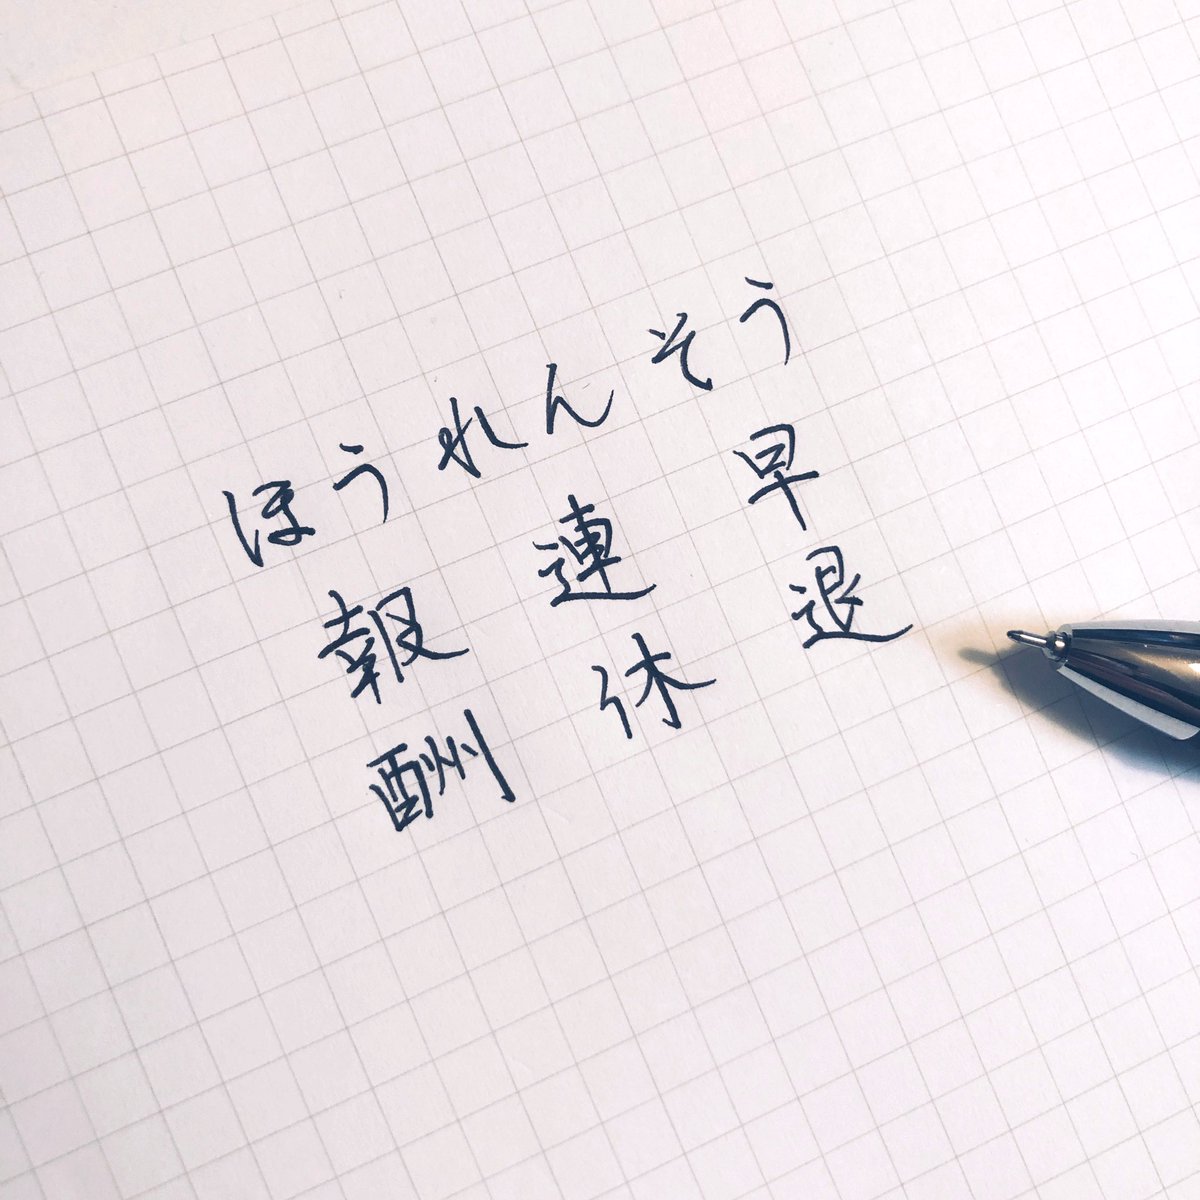 ほうれんそう
報酬
連休
早退